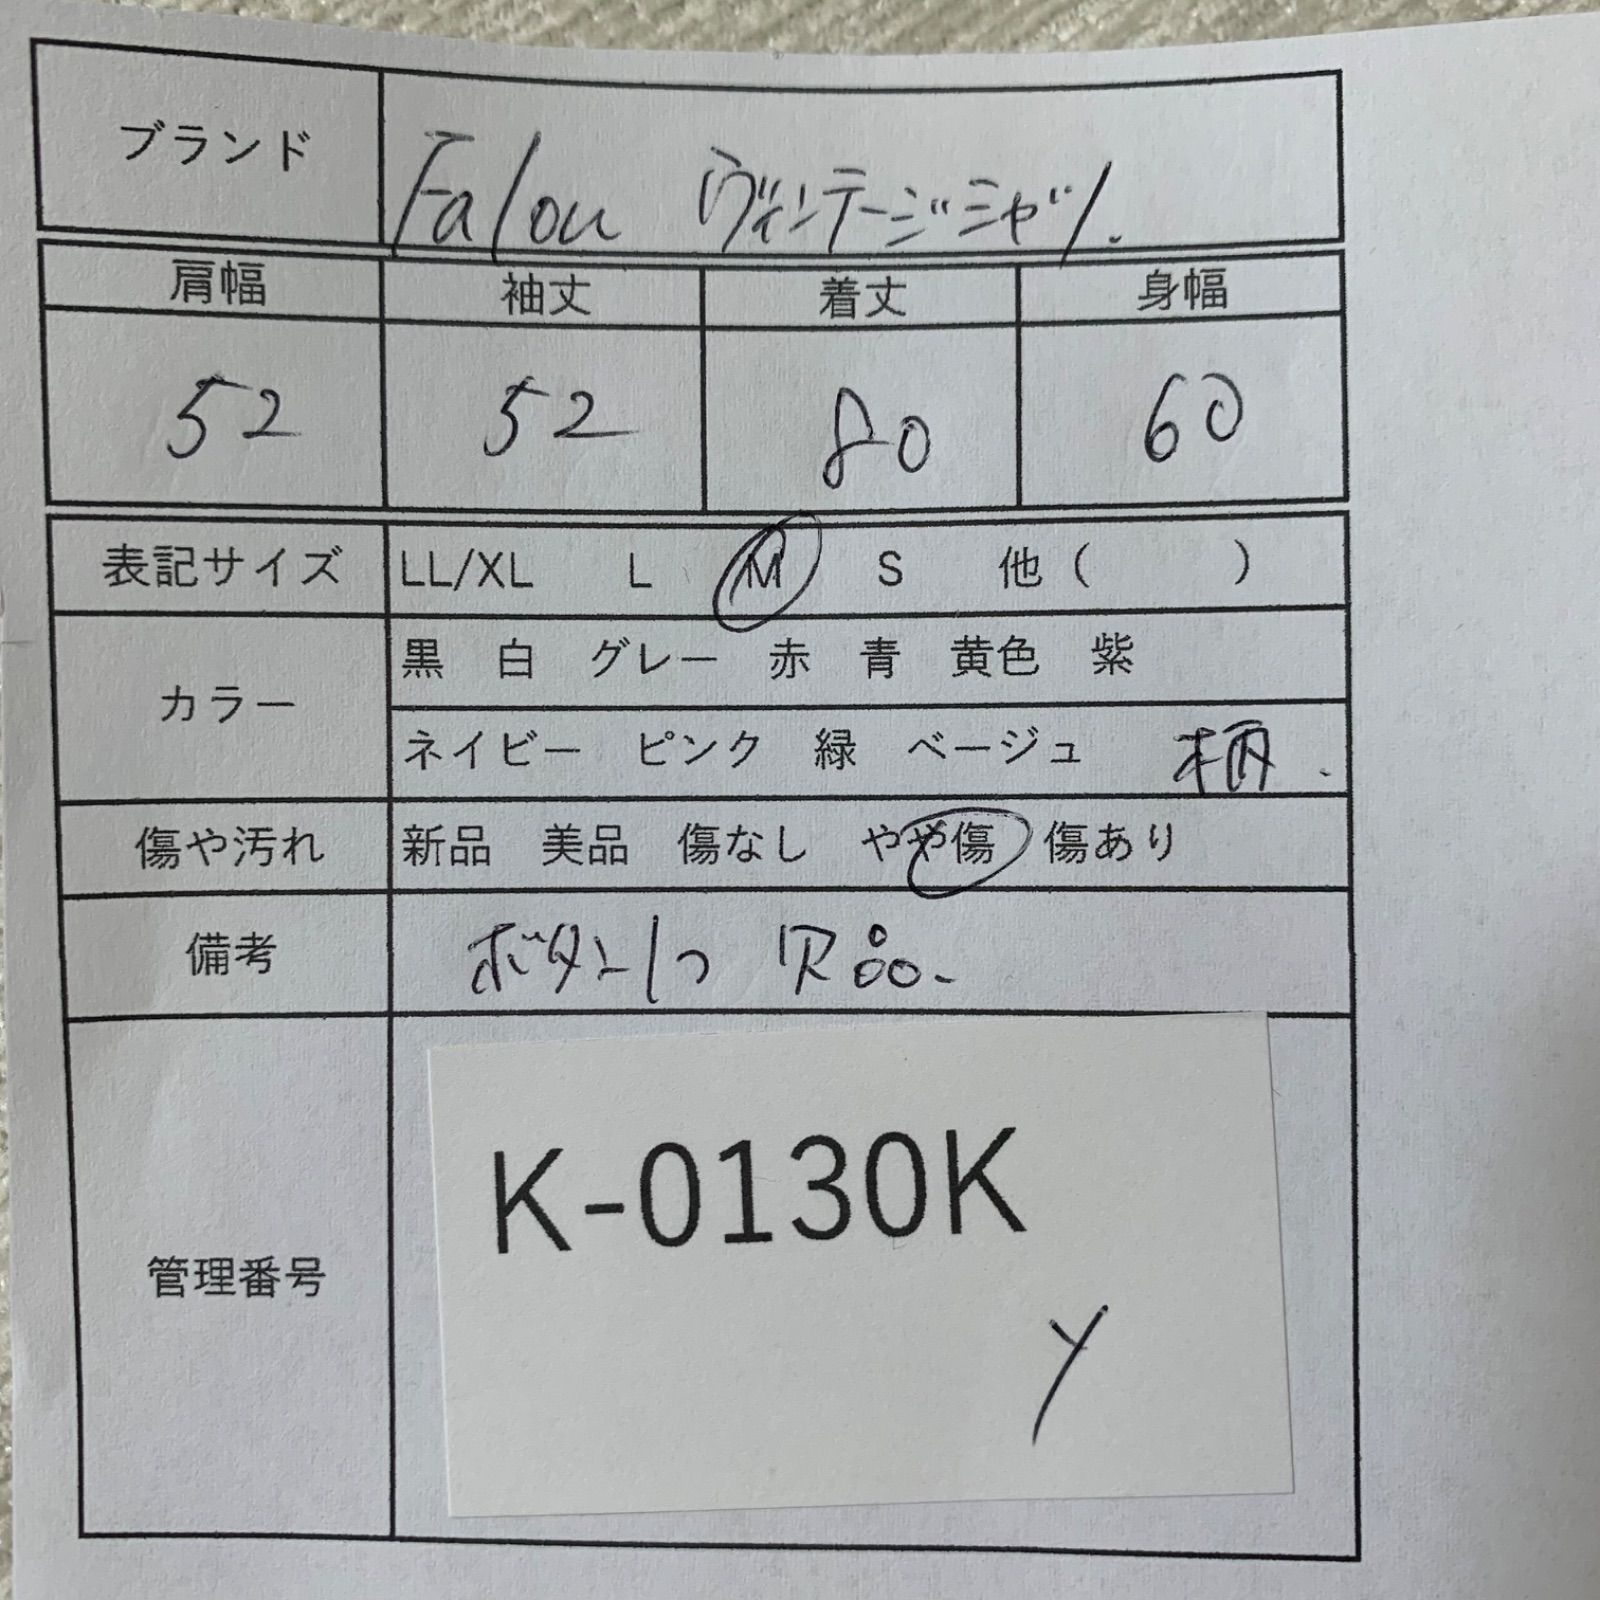 ブランド Falou ヴィンテージシャツ.
肩幅 袖丈 着丈 身幅
52 52 80 60
表記サイズ LL/XL L M S 他( )
カラー 黒 白 グレー 赤 青 黄色 紫
ネイビー ピンク 緑 ベージュ 柄.
傷や汚れ 新品 美品 傷なし やや傷 傷あり
備考 ボタン1つ 欠品.
管理番号 K-0130K
y